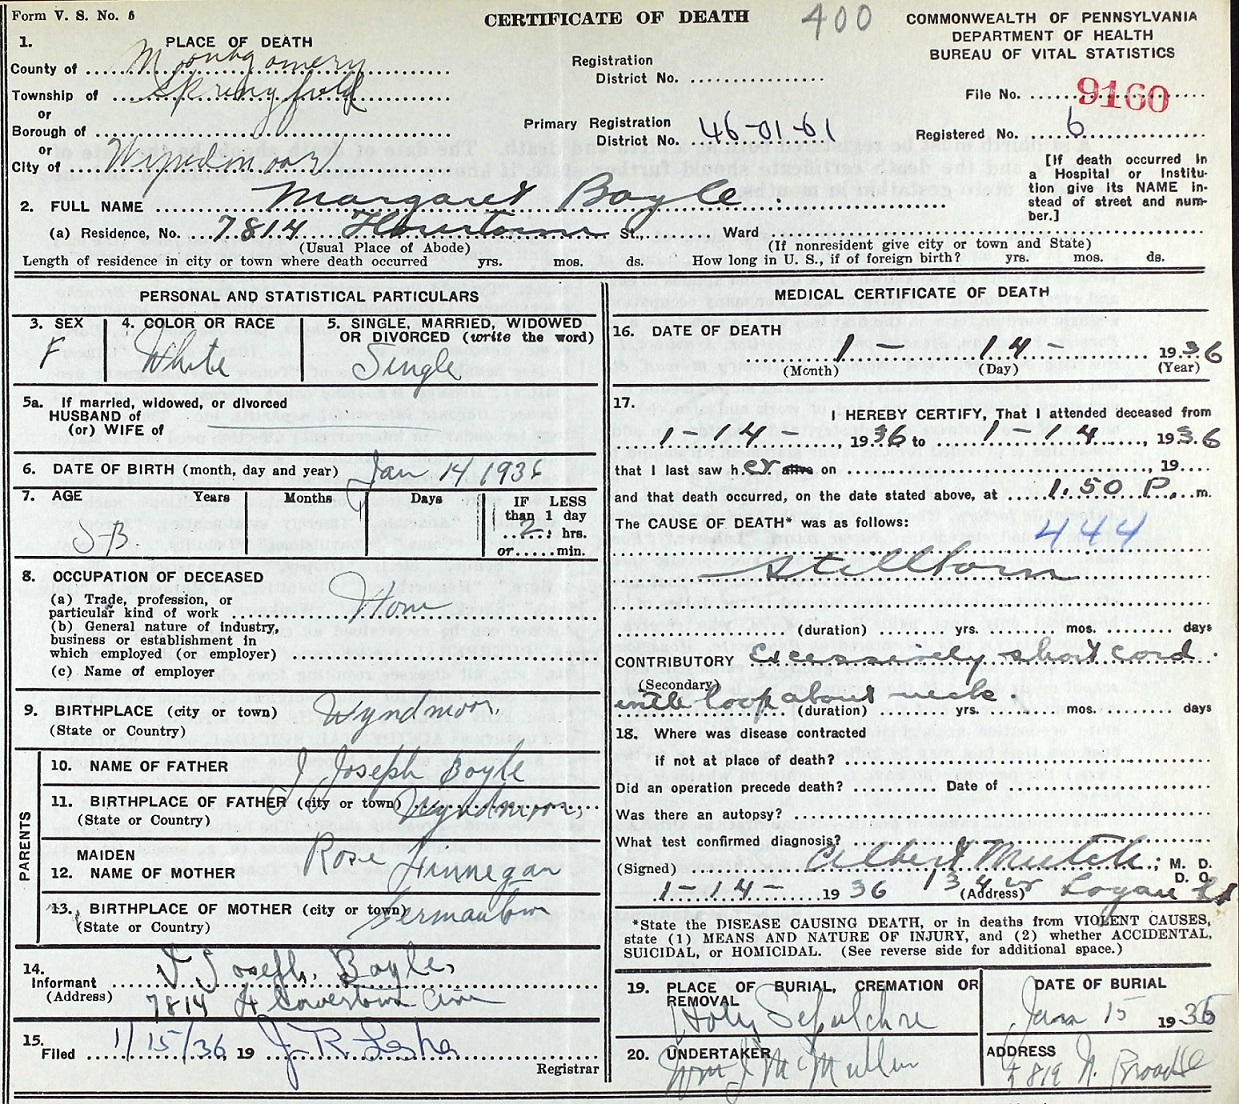 Form V. S. No. 5
CERTIFICATE OF DEATH
400
COMMONWEALTH OF PENNSYLVANIA
DEPARTMENT OF HEALTH
BUREAU OF VITAL STATISTICS
1. PLACE OF DEATH
County of Montgomery
Township of Springfield
or
Borough of
or
City of Wyndmoor
Registration
District No.
Primary Registration
District No. 46-01-61
File No. 9160
Registered No. 6
[If death occurred in
a Hospital or Institu-
tion give its NAME in-
stead of street and num-
ber.]
2. FULL NAME Margaret Boyle
(a) Residence, No. 7814 Flourtown St., Ward
(Usual Place of Abode) (If nonresident give city or town and State)
Length of residence in city or town where death occurred yrs. mos. ds. How long in U. S., if of foreign birth? yrs. mos. ds.
PERSONAL AND STATISTICAL PARTICULARS
3. SEX 4. COLOR OR RACE 5. SINGLE, MARRIED, WIDOWED
OR DIVORCED (write the word)
F White Single
5a. If married, widowed, or divorced
HUSBAND of
(or) WIFE of
6. DATE OF BIRTH (month, day and year) Jan 14, 1936
7. AGE Years Months Days IF LESS
than 1 day
hrs.
or min.
S-B
8. OCCUPATION OF DECEASED
(a) Trade, profession, or
particular kind of work
(b) General nature of industry,
business or establishment in
which employed (or employer)
(c) Name of employer
9. BIRTHPLACE (city or town) Wyndmoor,
(State or Country)
PARENTS
10. NAME OF FATHER J. Joseph Boyle
11. BIRTHPLACE OF FATHER (city or town) Wyndmoor,
(State or Country)
MAIDEN
12. NAME OF MOTHER Rose Finnegan
13. BIRTHPLACE OF MOTHER (city or town) Germantown
(State or Country)
14.
Informant J Joseph Boyle,
(Address) 7814 Flourtown Ave
15.
Filed 1/15/36 19
Registrar
MEDICAL CERTIFICATE OF DEATH
16. DATE OF DEATH
1 - 14 - 1936
(Month) (Day) (Year)
17.
I HEREBY CERTIFY, That I attended deceased from
1-14- 1936 to 1-14, 1936
that I last saw her alive on 19
and that death occurred, on the date stated above, at 1.50 P. m.
The CAUSE OF DEATH* was as follows:
444
Stillborn
(duration) yrs. mos. days
CONTRIBUTORY Excessively short cord
(Secondary)
with loop about neck
(duration) yrs. mos. days
18. Where was disease contracted
if not at place of death?
Did an operation precede death? Date of
Was there an autopsy?
What test confirmed diagnosis?
(Signed) Albert Mutch; M. D.
D. O.
1-14- 1936 (Address) Logan
*State the DISEASE CAUSING DEATH, or in deaths from VIOLENT CAUSES,
state (1) MEANS AND NATURE OF INJURY, and (2) whether ACCIDENTAL,
SUICIDAL, or HOMICIDAL. (See reverse side for additional space.)
19. PLACE OF BURIAL, CREMATION OR
REMOVAL
Holy Sepulchre
DATE OF BURIAL
Jan 15 1936
20. UNDERTAKER
Wm J McMullen
ADDRESS
5819 N. Broad St